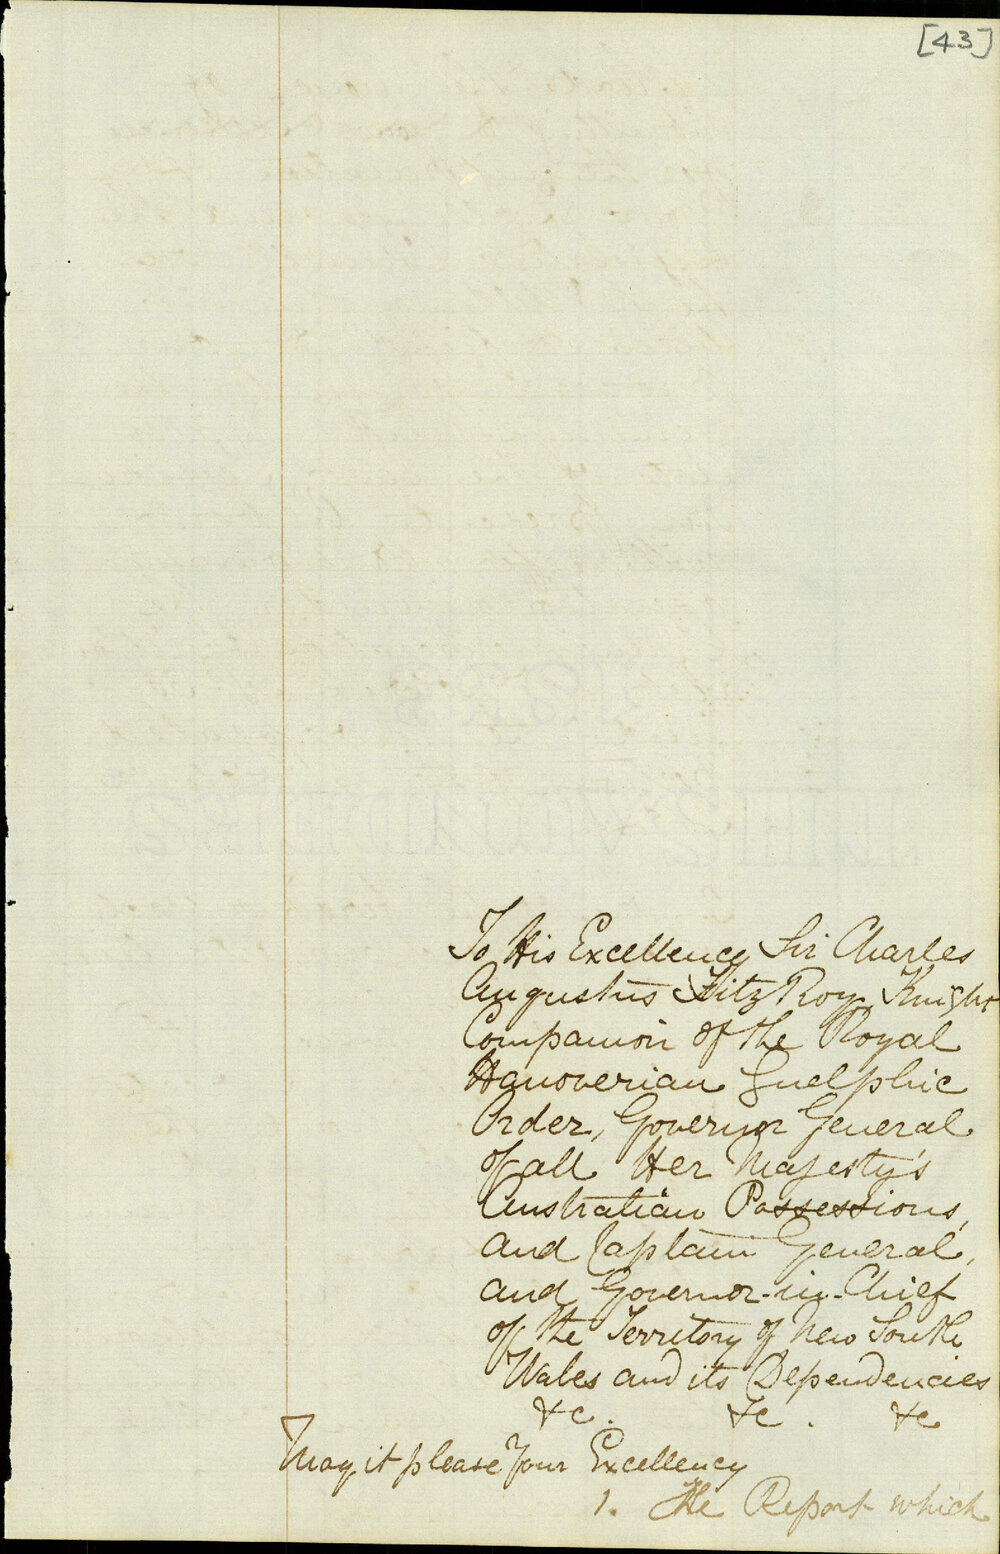 [43]
To His Excellency Sir Charles
Augustus FitzRoy, Knight
Companion of the Royal
Hanoverian Guelphic
Order, Governor General
of all Her Majesty's
Australian Possessions,
and Captain General,
and Governor-in-Chief
of the Territory of New South
Wales and its Dependencies
&c. &c. &c
May it please Your Excellency
1. The Report which